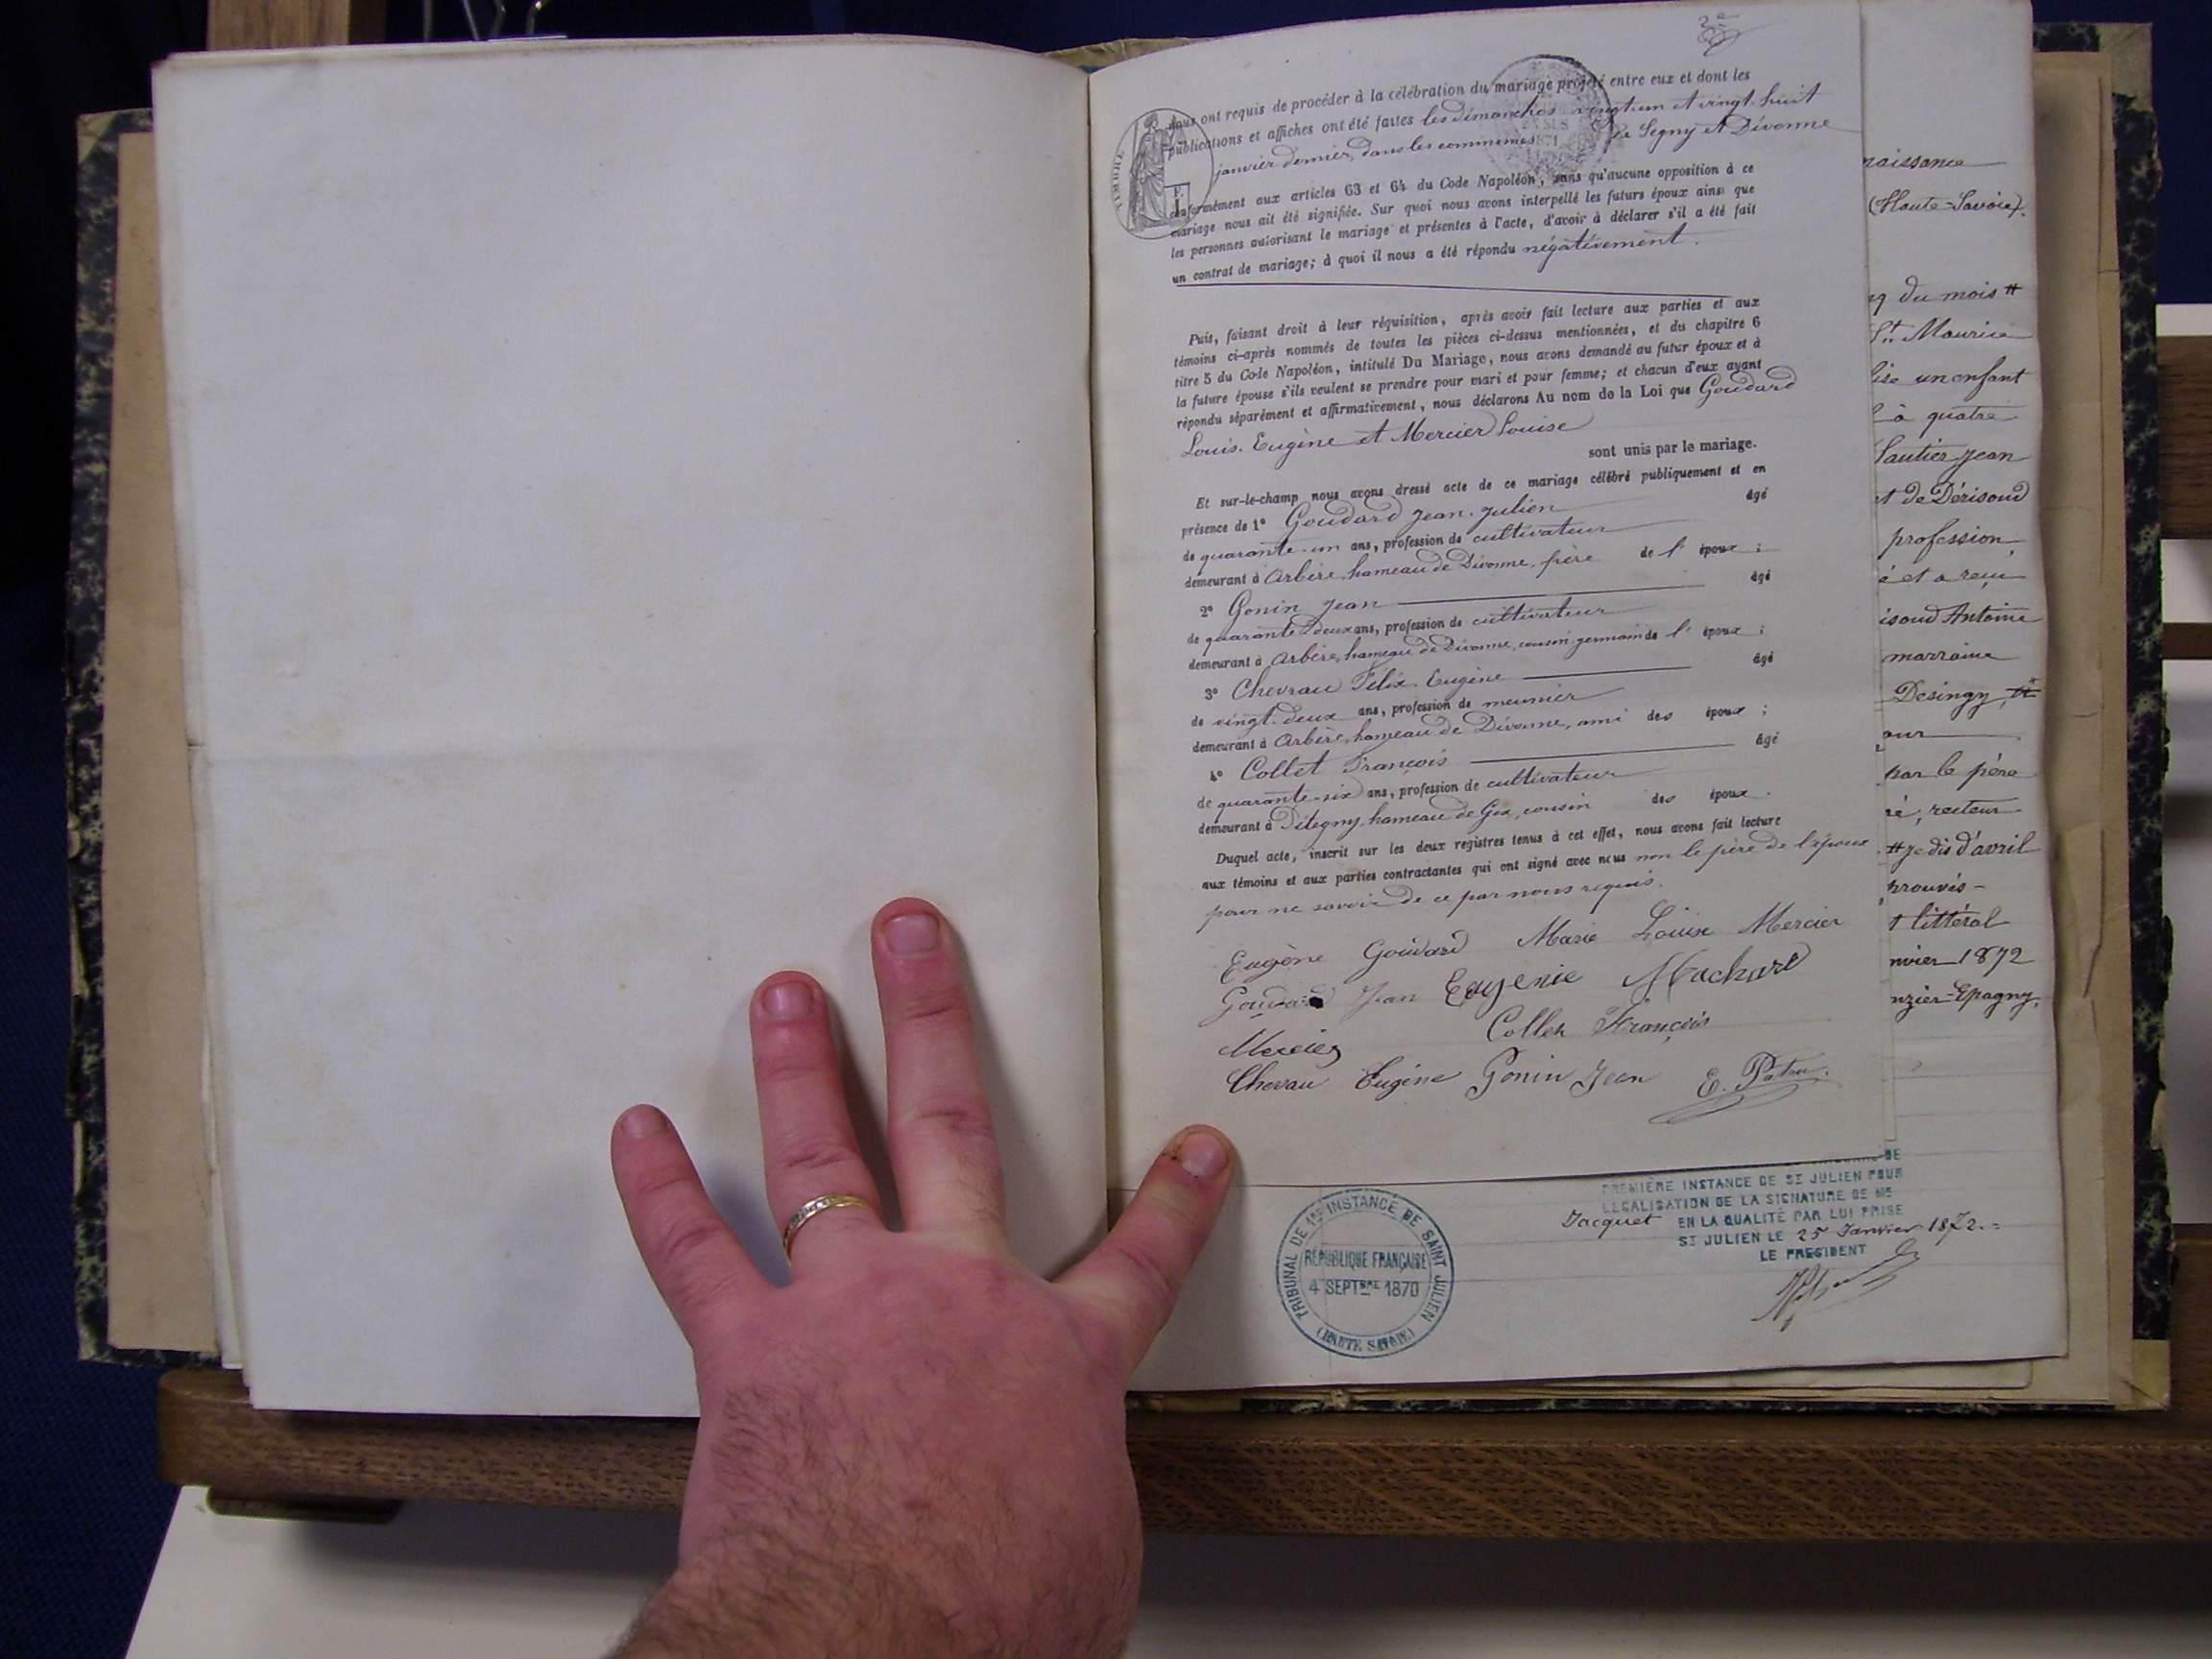 2e
TIMBRE
nous ont requis de procéder à la célébration du mariage projeté entre eux et dont les
publications et affiches ont été faites les dimanches vingt-un et vingt-huit
janvier dernier, dans les communes de Segny et Divonne
conformément aux articles 63 et 64 du Code Napoléon, sans qu'aucune opposition à ce
mariage nous ait été signifiée. Sur quoi nous avons interpellé les futurs époux ainsi que
les personnes autorisant le mariage et présentes à l'acte, d'avoir à déclarer s'il a été fait
un contrat de mariage; à quoi il nous a été répondu négativement.
Puis, faisant droit à leur réquisition, après avoir fait lecture aux parties et aux
témoins ci-après nommés de toutes les pièces ci-dessus mentionnées, et du chapitre 6
titre 5 du Code Napoléon, intitulé Du Mariage, nous avons demandé au futur époux et à
la future épouse s'ils veulent se prendre pour mari et pour femme; et chacun d'eux ayant
répondu séparément et affirmativement, nous déclarons Au nom de la Loi que Goudard
Louis-Eugène et Mercier Louise
sont unis par le mariage.
Et sur-le-champ nous avons dressé acte de ce mariage célébré publiquement et en
présence de 1º Goudard Jean-Julien âgé
de quarante-un ans, profession de cultivateur
demeurant à Arbère, hameau de Divonne, frère de l' époux ;
2º Gonin Jean âgé
de quarante-deux ans, profession de cultivateur
demeurant à Arbère, hameau de Divonne, cousin germain de l' époux ;
3º Chevrau Félix-Eugène âgé
de vingt-deux ans, profession de meunier
demeurant à Arbère, hameau de Divonne, ami des époux ;
4º Collet François âgé
de quarante-six ans, profession de cultivateur
demeurant à Pitegny, hameau de Gex, cousin des époux.
Duquel acte, inscrit sur les deux registres tenus à cet effet, nous avons fait lecture
aux témoins et aux parties contractantes qui ont signé avec nous non le père de l'époux
pour ne savoir de ce par nous requis.
Eugène Goudard Marie Louise Mercier
Goudard Jean Eugenie Machard
Mercier Collet François
Chevau Eugéne Gonin Jean E. Patru.
naissance
(Haute-Savoie).
du mois #
St Maurice
un enfant
à quatre
Gautier Jean
et de Dérisoud
profession
é et a reçu
isoud Antoine
marraine
Desingy, #
our
par le père
ré, recteur
# je dis d'avril
prouvés -
t littéral
nvier 1872
nzier-Epagny,
PREMIÈRE INSTANCE DE ST JULIEN POUR
LEGALISATION DE LA SIGNATURE DE Mr
Jacquet EN LA QUALITÉ PAR LUI PRISE
ST JULIEN LE 25 Janvier 1872.
LE PRESIDENT
TRIBUNAL DE 1RE INSTANCE DE SAINT JULIEN
RÉPUBLIQUE FRANÇAISE
4 SEPTBRE 1870
(HAUTE SAVOIE)